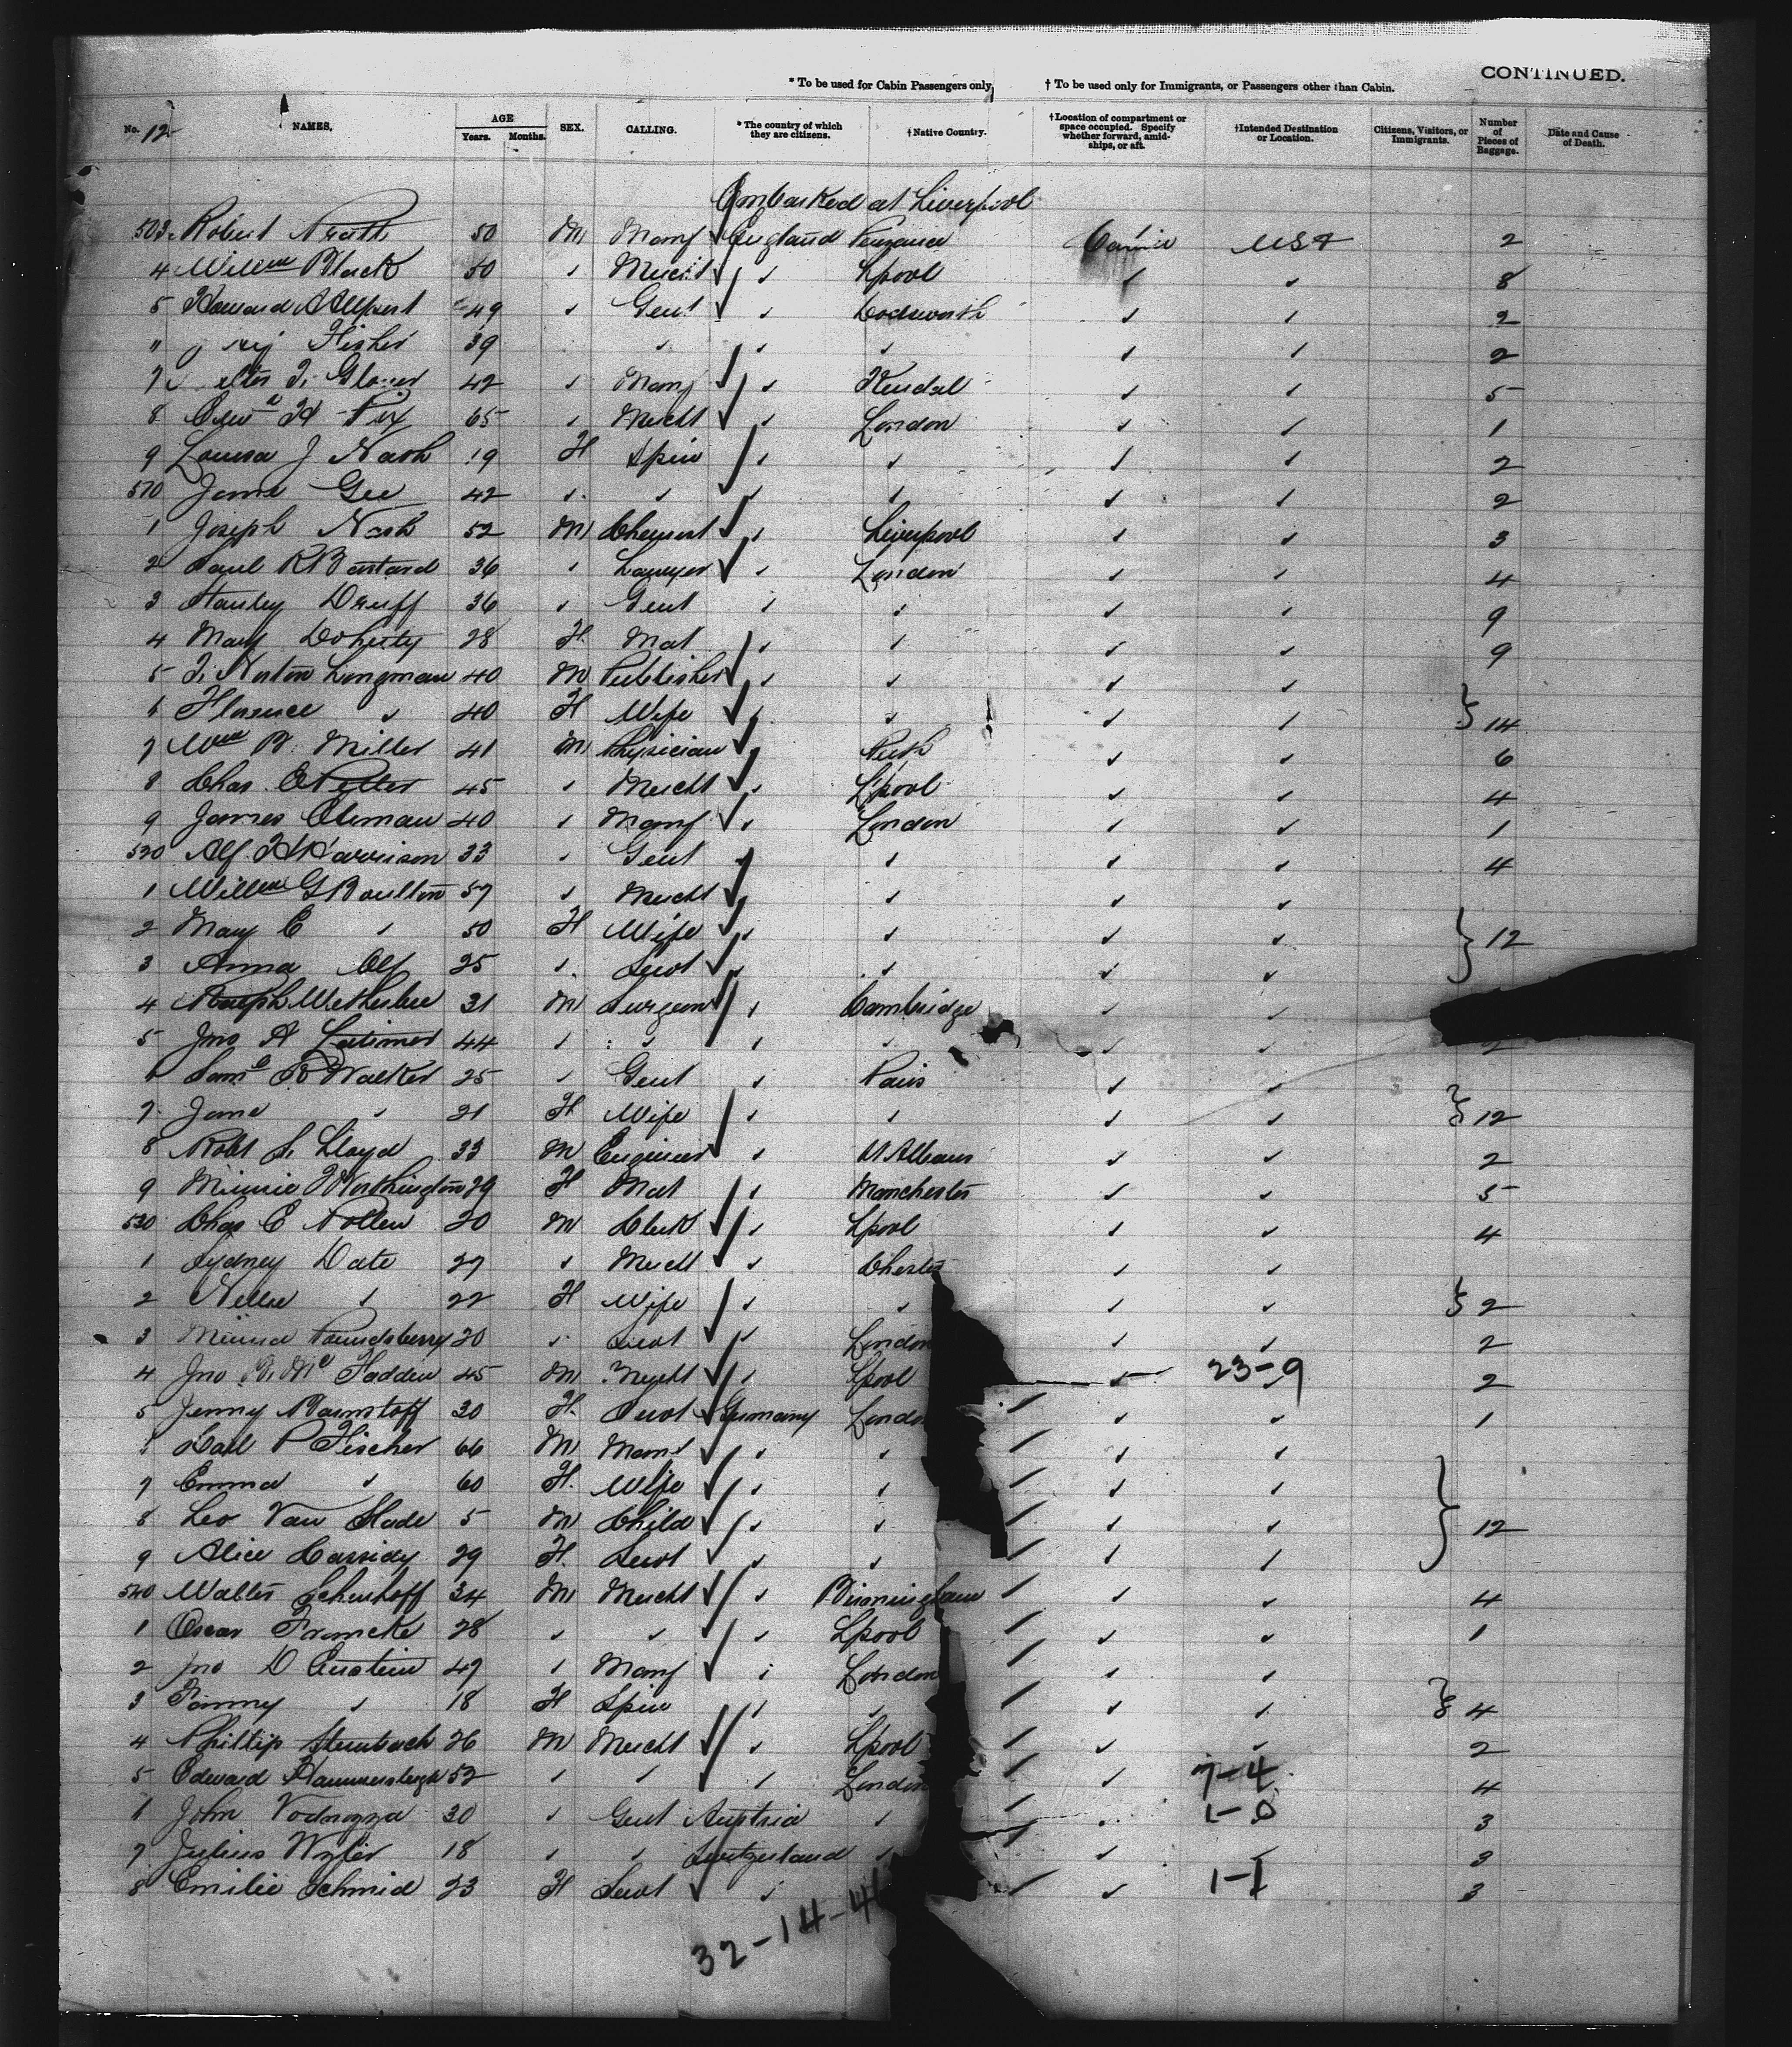 CONTINUED.
* To be used for Cabin Passengers only. † To be used only for Immigrants, or Passengers other than Cabin.
No. 12 NAMES. AGE Years. Months. SEX. CALLING. * The country of which they are citizens. † Native Country. † Location of compartment or space occupied. Specify whether forward, amidships, or aft. † Intended Destination or Location. Citizens, Visitors, or Immigrants. Number of Pieces of Baggage. Date and Cause of Death.
Embarked at Liverpool
503 Robert 50 M Manf England Penzance USA 2
4 Willm Black 50 ✓ Mercht ✓ ✓ Lpool ✓ ✓ 8
5 49 ✓ Gent ✓ ✓ ✓ ✓ 2
" Fisher 39 ✓ ✓ ✓ ✓ ✓ 2
7 42 ✓ Manf ✓ ✓ Kendal ✓ ✓ 5
8 Edwd H Pix 65 ✓ Mercht ✓ ✓ London ✓ ✓ 1
9 Louisa J Nash 19 F Spin ✓ ✓ ✓ ✓ 2
510 Jane Gee 42 ✓ ✓ ✓ ✓ ✓ ✓ 2
1 Joseph Nash 52 M Chemist ✓ ✓ Liverpool ✓ ✓ 3
2 Paul R Bastard 36 ✓ Lawyer ✓ ✓ London ✓ ✓ 4
3 Stanley Druff 36 ✓ Gent ✓ ✓ ✓ ✓ 9
4 Mary Doherty 28 F. Mat ✓ ✓ ✓ ✓ 9
5 T. Norton Longman 40 M Publisher ✓ ✓ ✓ ✓ ✓
6 Florence ✓ 40 F Wife ✓ ✓ ✓ ✓ ✓ } 14
7 Wm B. Miller 41 M Physician ✓ ✓ Perth ✓ ✓ 6
8 Chas. 45 ✓ Mercht ✓ ✓ Lpool ✓ ✓ 4
9 James 40 ✓ Manf ✓ ✓ London ✓ ✓ 1
520 Alf. H Harrison 33 ✓ Gent ✓ ✓ ✓ ✓ 4
1 Willm G Boulton 57 ✓ Mercht ✓ ✓ ✓ ✓
2 Mary E ✓ 50 F Wife ✓ ✓ ✓ ✓ ✓ } 12
3 Anna 25 ✓ Servt ✓ ✓ ✓ ✓ ✓
4 Wetherbee 31 M Surgeon ✓ ✓ Cambridge ✓ ✓
5 Jno A Latimer 44 ✓ ✓ ✓ ✓ ✓ ✓ 2
6 Saml R Walker 25 ✓ Gent ✓ Paris ✓ ✓
7 Jane ✓ 21 F Wife ✓ ✓ ✓ ✓ } 12
8 Robt S. Lloyd 33 M Engineer ✓ ✓ St Albans ✓ ✓ 2
9 Minnie Worthington 29 F Mat ✓ Manchester ✓ ✓ 5
530 Chas E Nollen 20 M Clerk ✓ ✓ Lpool ✓ ✓ 4
1 Sydney Date 27 ✓ Mercht ✓ ✓ Chester ✓ ✓
2 Nellie ✓ 22 F Wife ✓ ✓ ✓ ✓ } 2
3 20 ✓ Servt ✓ ✓ London ✓ ✓ 2
4 Jno B. Mc Fadden 45 M Mercht ✓ ✓ Lpool ✓ 23-9 2
5 Jenny 30 F. Servt ✓ Germany London ✓ ✓ 1
6 Carl P Fischer 66 M Manf ✓ ✓ ✓ ✓ ✓
7 Emma ✓ 60 F. Wife ✓ ✓ ✓ ✓ ✓
8 Leo Van Slade 5 M Child ✓ ✓ ✓ ✓ ✓ } 12
9 Alice Cassidy 29 F. Servt ✓ ✓ ✓ ✓ ✓
540 Walter 34 M Mercht ✓ ✓ Birmingham ✓ ✓ 4
1 Oscar 28 ✓ ✓ ✓ ✓ Lpool ✓ ✓ 1
2 Jno D Einstein 47 ✓ Manf ✓ ✓ London ✓ ✓
3 Fanny ✓ 18 F Spin ✓ ✓ ✓ ✓ } 4
4 Phillip Steinbach 26 M Mercht ✓ ✓ Lpool ✓ ✓ 2
5 Edward 52 ✓ ✓ ✓ ✓ London ✓ 7-4 4
6 John 30 ✓ Gent Austria ✓ 1-0 3
7 Julius Wyler 18 ✓ ✓ Switzerland ✓ ✓ ✓ 3
8 Emilie Schmid 23 F Servt ✓ ✓ ✓ 1-1 3
32-14-4